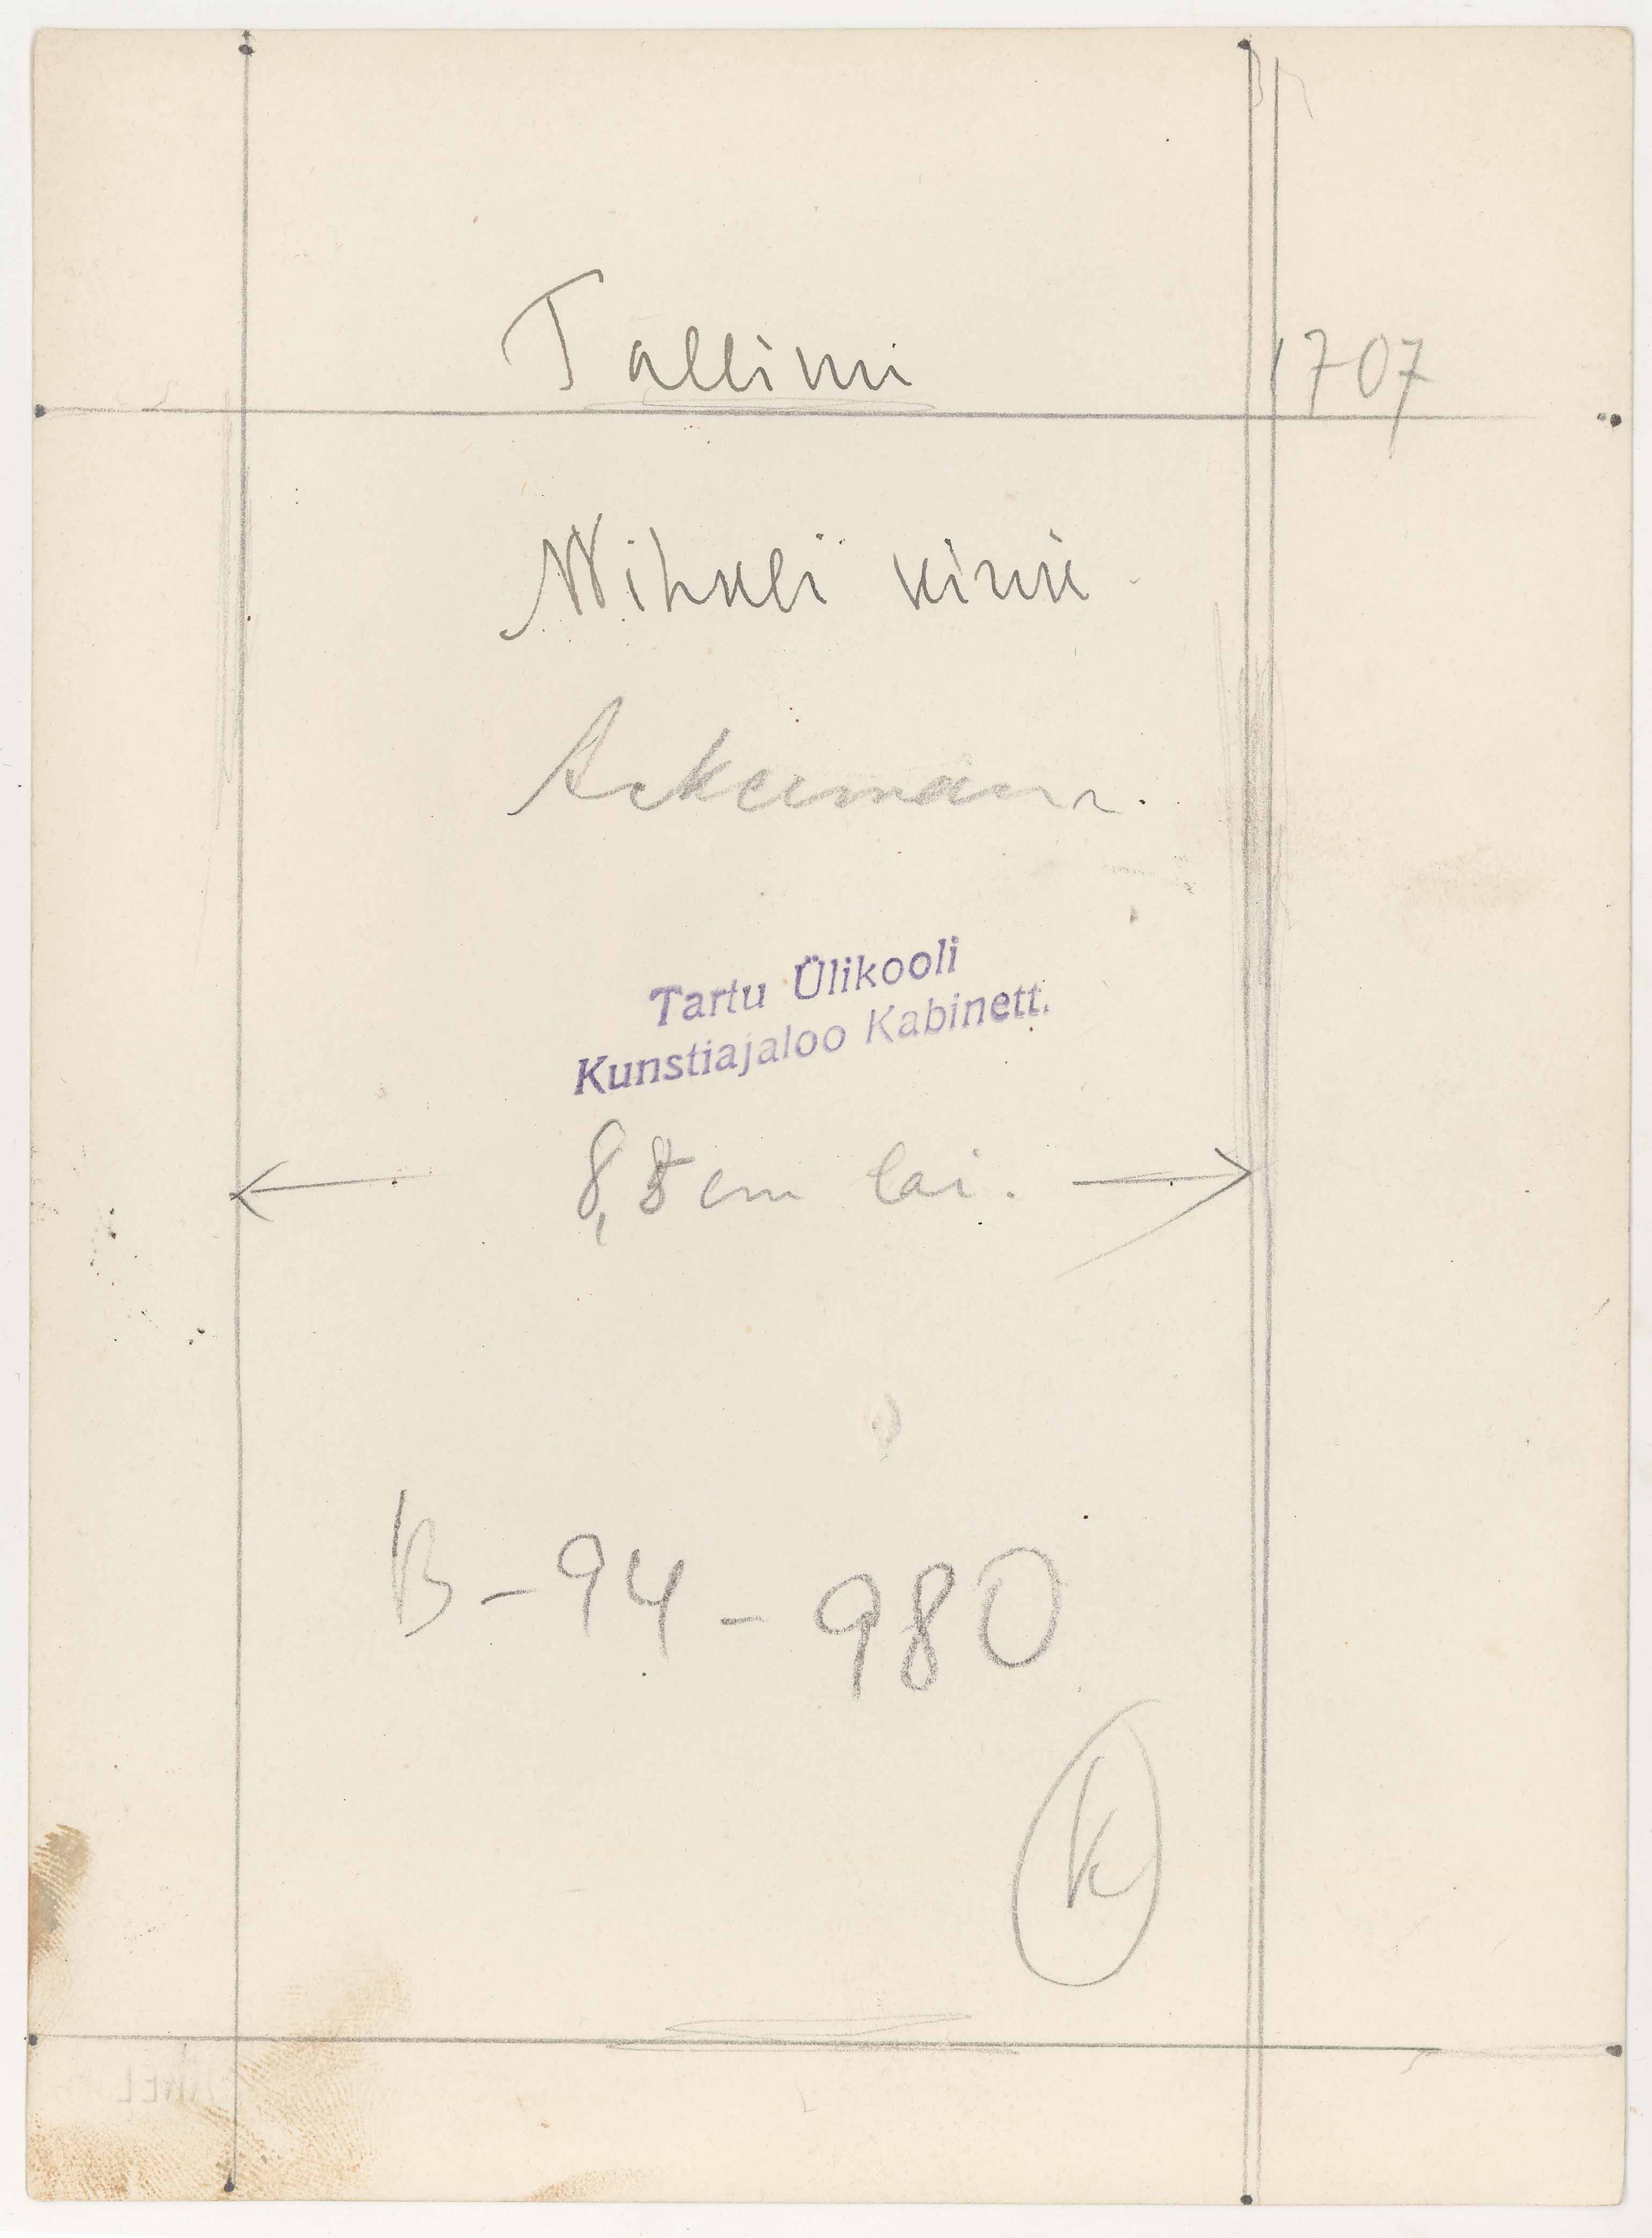 Tallinn
1707
Mihkli kirik
Ackermann.
Tartu Ülikooli
Kunstiajaloo Kabinett.
8,8 cm lai.
B-94-980
K